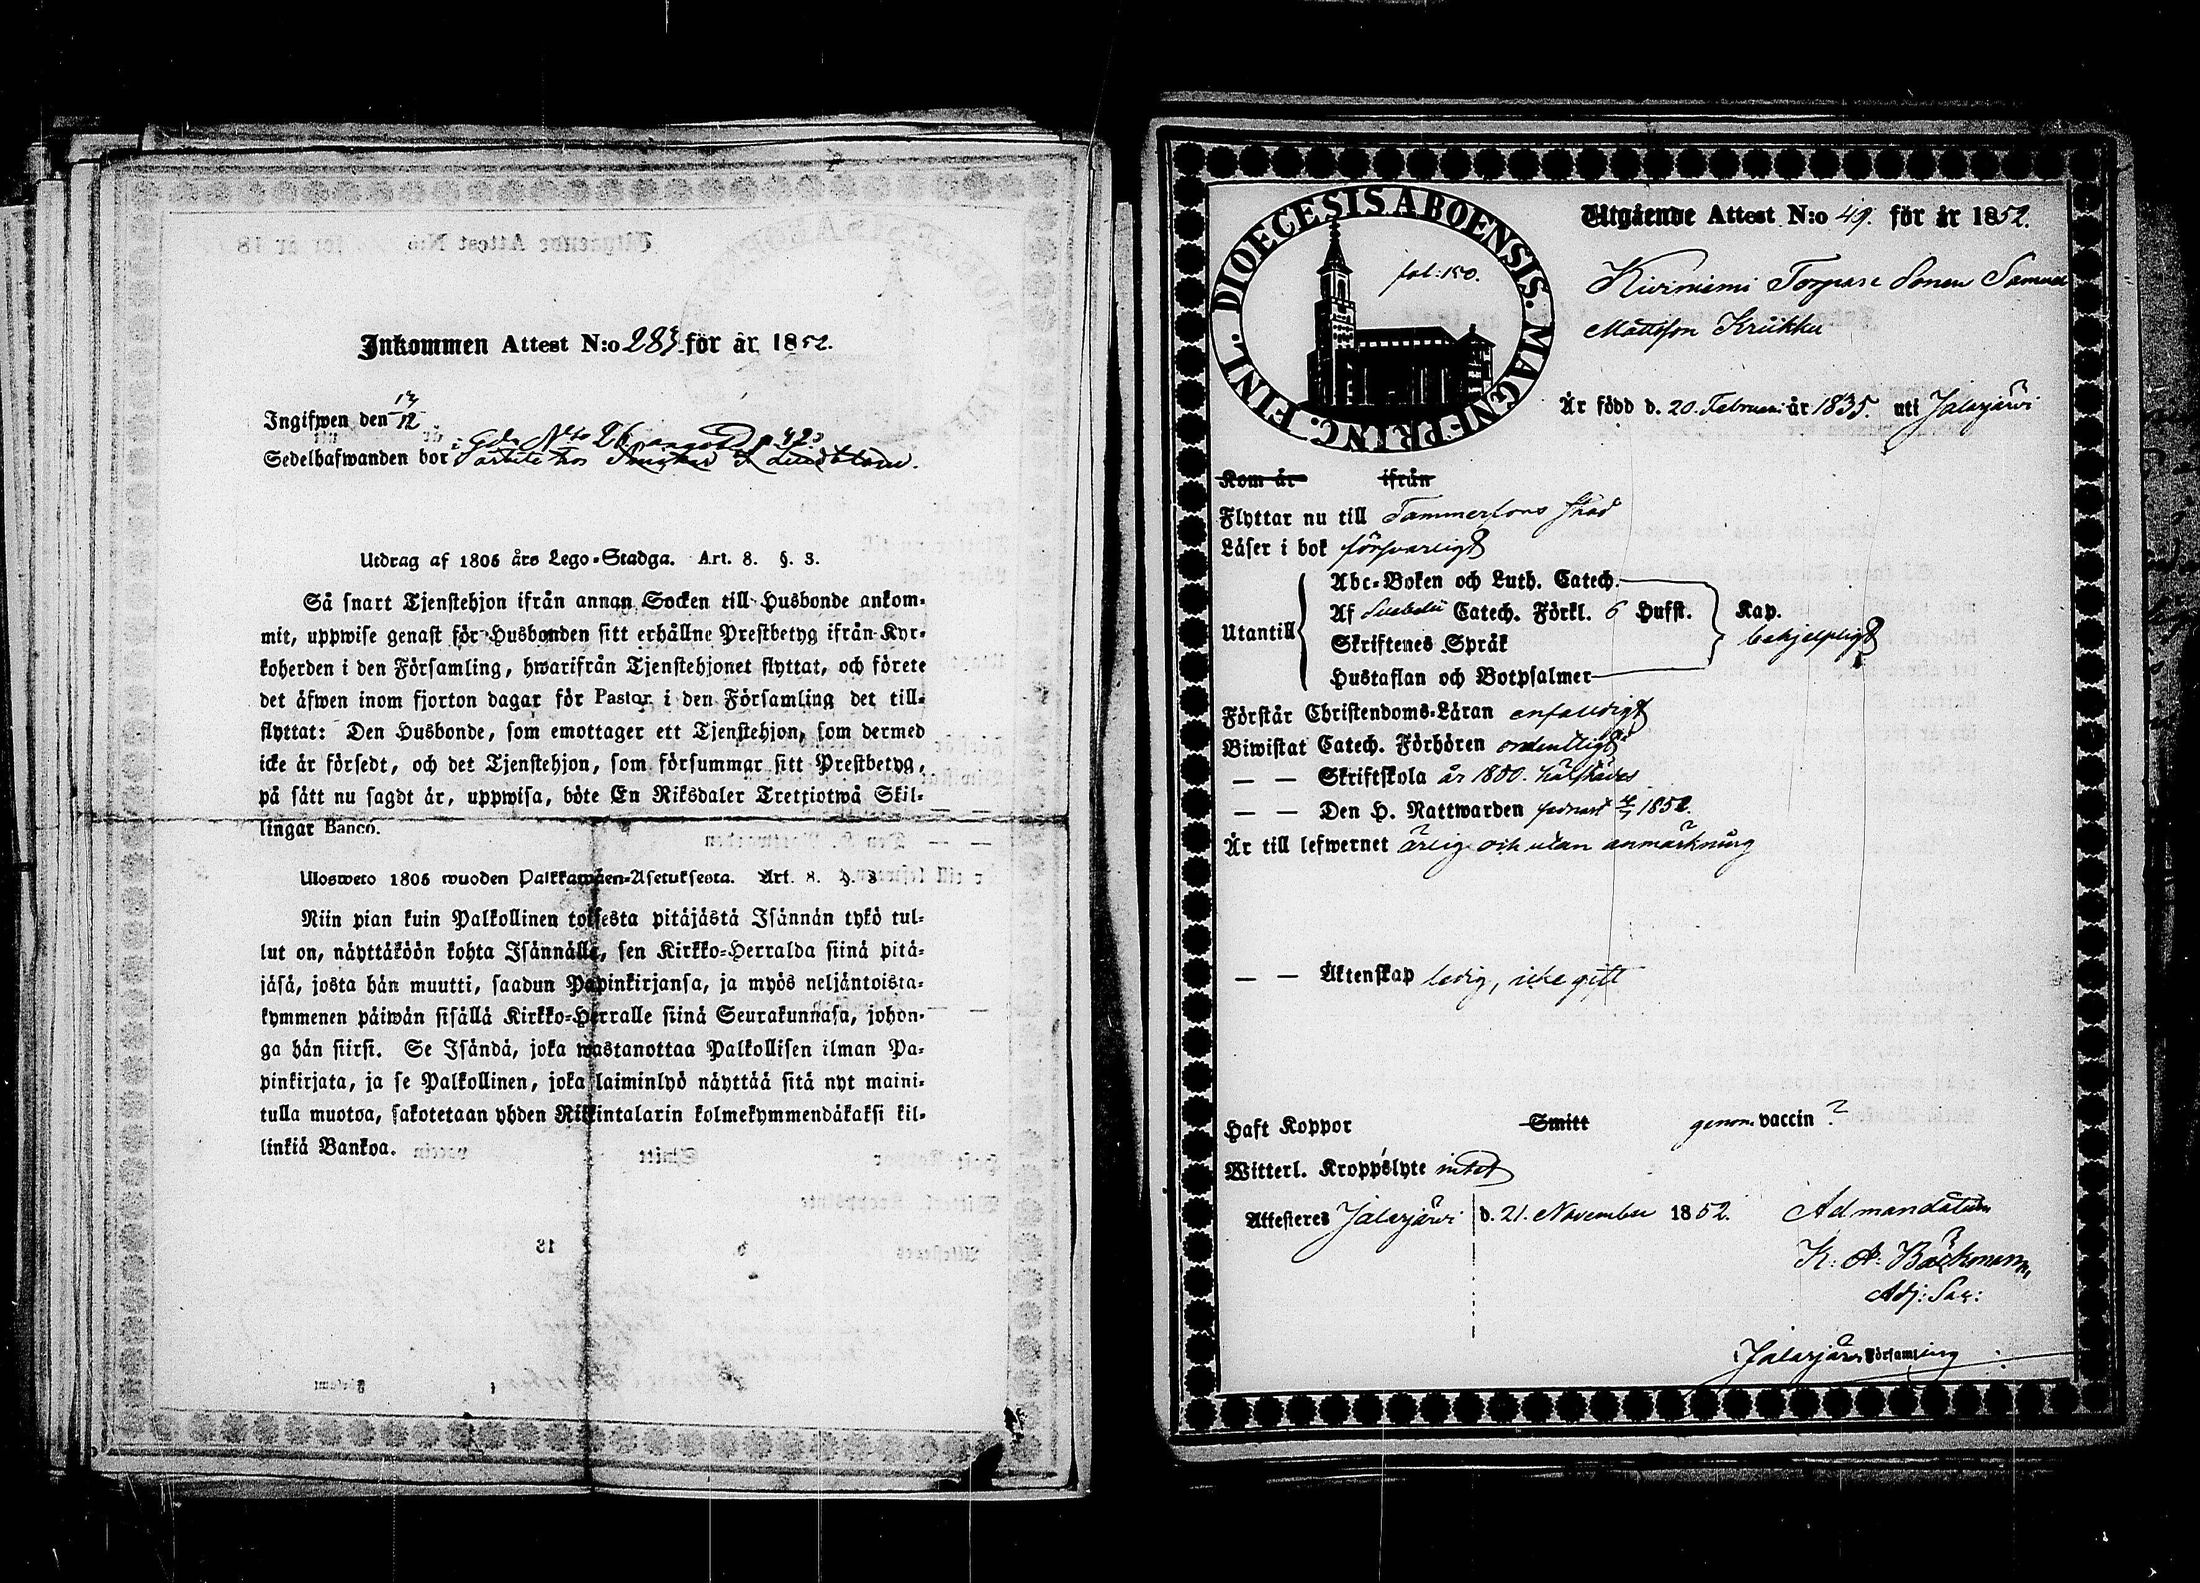 Inkommen Attest N:o 283. för år 1852.
Ingifwen den 13/12
i Gdn N:to 26 p. 423
Sedelhafwanden bor hos
Utdrag af 1805 års Lego-Stadga. Art. 8. §. 3.
Så snart Tjenstehjon ifrån annan Socken till Husbonde ankom-
mit, uppwise genast för Husbonden sitt erhållne Prestbetyg ifrån Kyr-
koherden i den Församling, hwarifrån Tjenstehjonet flyttat, och förete
det äfwen inom fjorton dagar för Pastor i den Församling det till-
flyttat: Den Husbonde, som emottager ett Tjenstehjon, som dermed
icke är försedt, och det Tjenstehjon, som försummar sitt Prestbetyg,
på sätt nu sagdt är, uppwisa, böte En Riksdaler Trettiotwå Skil-
lingar Banco.
Ulosweto 1805 wuoden Palkkawäen-Asetuksesta. Art. 8. §. 3
Niin pian kuin Palkollinen toisesta pitäjästä Isännän tykö tul-
lut on, näyttäköön kohta Isännälle, sen Kirkko-Herralda siinä pitä-
jäsä, josta hän muutti, saadun Papinkirjansa, ja myös neljäntoista-
kymmenen päiwän sisällä Kirkko-Herralle siinä Seurakunnasa, johon-
ga hän siirsi. Se Isändä, joka wastanottaa Palkollisen ilman Pa-
pinkirjata, ja se Palkollinen, joka laiminlyö näyttää sitä nyt maini-
tulla muotoa, sakotetaan yhden Riikintalarin kolmekymmendäkaksi kil-
linkiä Bankoa.
DIOECESIS ABOENSIS. MAGNI PRINC. FINL.
fol: 150.
Utgående Attest N:o 49. för år 1852.
Kiviniemi Torpare Sonen Samuel
Mattsson Kriikku
Är född d. 20. Februari år 1835. uti Jalasjärvi
Kom år ifrån
Flyttar nu till Tammerfors Stad
Läser i bok försvarligt
Utantill
Abc-Boken och Luth. Catech.
Af Svebelii Catech. Förkl. 6 Hufst. Kap.
Skriftenes Språk
behjelpligt
Hustaflan och Botpsalmer
Förstår Christendoms-Läran enfaldigt
Biwistat Catech. Förhören ordentligt
— — Skriftskola år 1850.
— — Den H. Nattwarden 1852.
Är till lefwernet ärlig och utan anmärkning
— — Äktenskap ledig, icke gift
Haft Koppor Smitt genom vaccin ?
Witterl. Kroppslyte intet
Attesteres Jalasjärvi d. 21. November 1852. Ad mandatum
K: A: Bäckman,
Adj: Sac:
i Jalasjärvi Församling